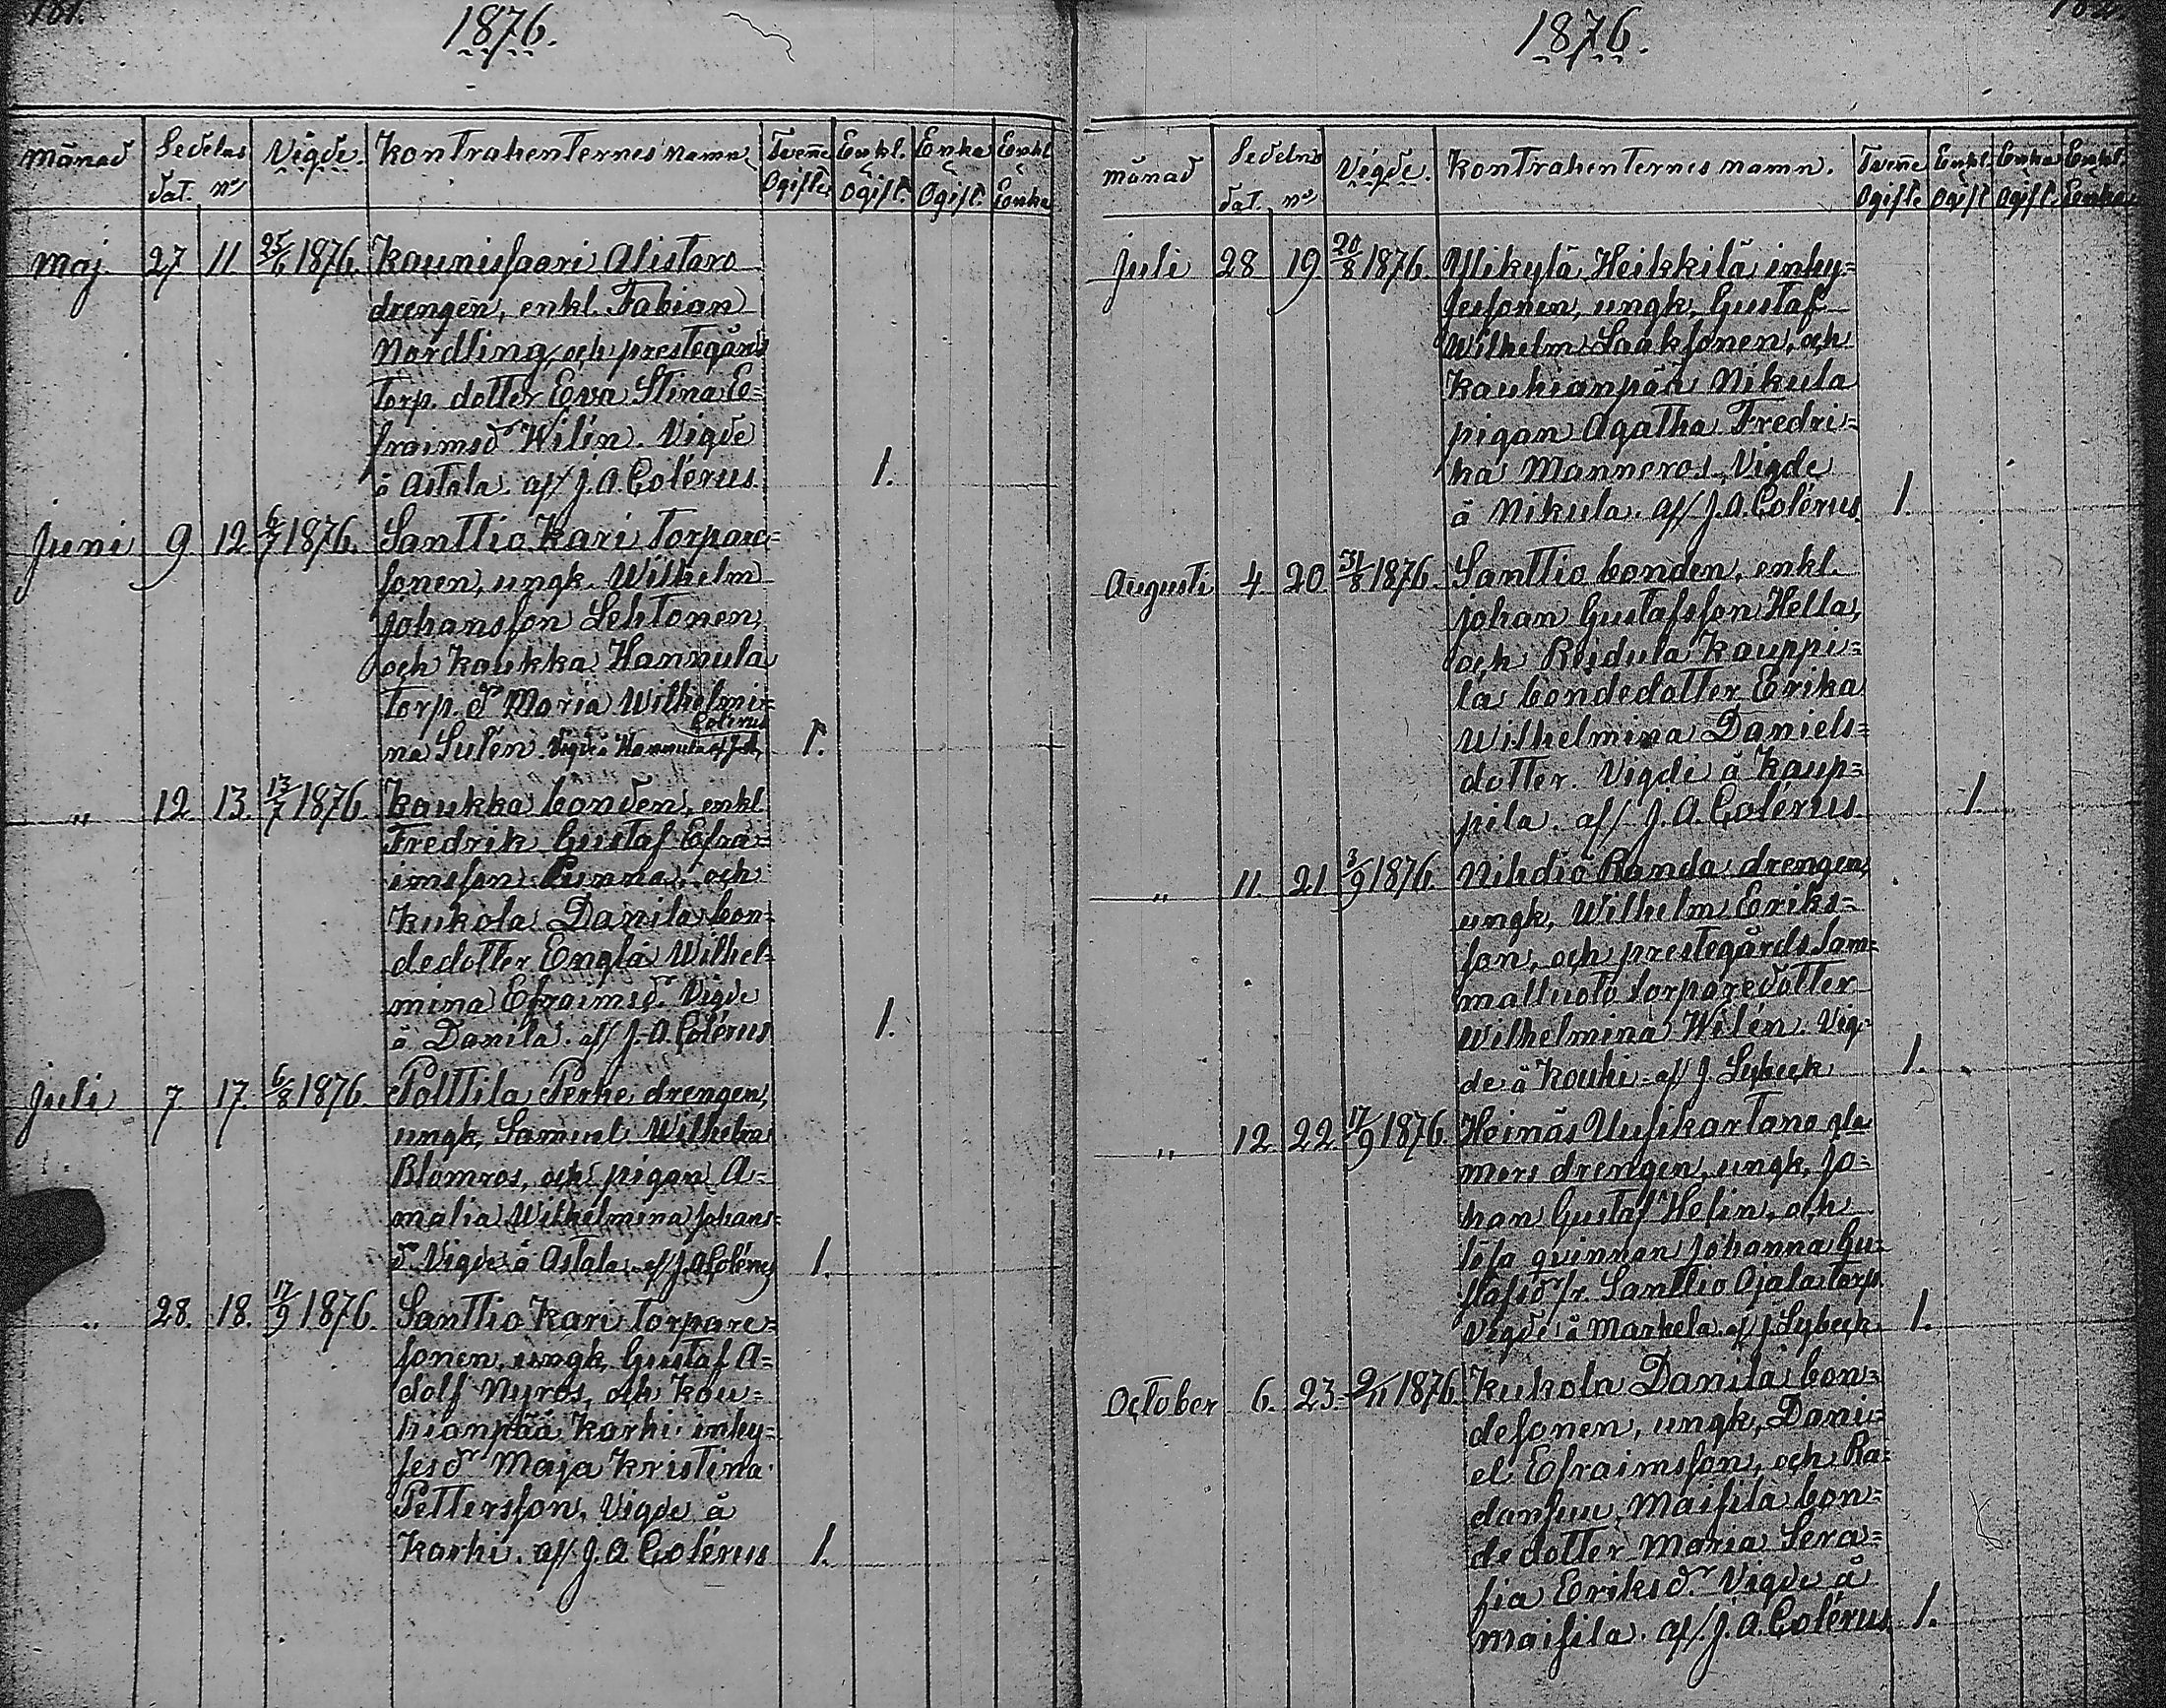 1876.
Månad Sedelns Vigde. Kontrahenternes namn. Tvenne Enkl. Enka Enkl.
dat. nº Ogifte Ogift. Ogift. Enka
Maj. 27 11. 25/6 1876. Kaunissaari Alistaro
drengen, enkl. Fabian
Nordling, och prestegårds
torp. dotter Eva Stina E=
fraimsdr Wilén. Vigde
å Astala. af/ J. A. Colérus. 1.
Juni 9 12. 6/7 1876. Santtio Kari torpare=
sonen, ungk. Wilhelm
Johansson Lehtonen,
och Kaukka Hannula
torp. dr Maria Wilhelmi=
na Sulén. Vigde å Hannula af J. A. Colérus 1.
" 12. 13. 13/7 1876. Kaukka bonden, enkl.
Fredrik Gustaf Efra=
imsson och
Kukola Danila bon=
dedotter Engla Wilhel=
mina Efraimsdr. Vigde
å Danila. af/ J. A. Colérus 1.
Juli 7. 17. 6/8 1876. Polttila Perhe drengen,
ungk. Samuel Wilhelm
Blomros, och pigan A=
malia Wilhelmina Johans=
dr Vigde å Astala. af/ J. A. Colérus 1.
" 28. 18. 17/9 1876. Santtio Kari torpare=
sonen, ungk. Gustaf A=
dolf Nyros, och Kau=
hianpää Karhi inhy=
sesdr Maja Kristina
Pettersson. Vigde å
Karhi. af/ J. A. Colérus 1.
1876.
Månad Sedelns Vigde. Kontrahenternes namn. Tvenne Enkl. Enka Enkl.
dat. nº Ogifte Ogift Ogift. Enka
Juli 28 19 20/8 1876. Ylikylä Heikkilä inhy=
sessonen, ungk. Gustaf
Wilhelm Saaksonen, och
Kauhianpää Nikula
pigan Agatha Fredri=
ka Manneros. Vigde
å Nikula. af/ J. A. Colérus. 1.
Augusti 4. 20. 31/8 1876. Santtio bonden, enkl.
Johan Gustafsson Hella,
och Kauppi=
la bondedotter Erika
Wilhelmina Daniels=
dotter. Vigde å Kaup=
pila. af/ J. A. Colérus. 1.
" 11. 21 3/9 1876. Nihdiö Randa drengen
ungk, Wilhelm Eriks=
son, och prestegårds Sam=
maltuoto torparedotter
Wilhelmina Wilén. Vig=
de å Kouhi. af/ J. Lybeck 1.
" 12. 22. 17/9 1876. Heinäs Uusikartano gla
mers drengen, ungk. Jo=
han Gustaf Helin, och
lösa qvinnan Johanna Gu=
stafsdr fr. Santtio Ojala torp.
Vigde å Markela. af J. Lybeck 1.
October 6. 23. 2/11 1876. Kukola Danila bon=
desonen, ungk, Dani=
el Efraimsson, och Ra=
dansuu, Maisila bon=
dedotter Maria Sera=
fia Eriksdr. Vigde å
Maisila. af/. J. A. Colérus 1.